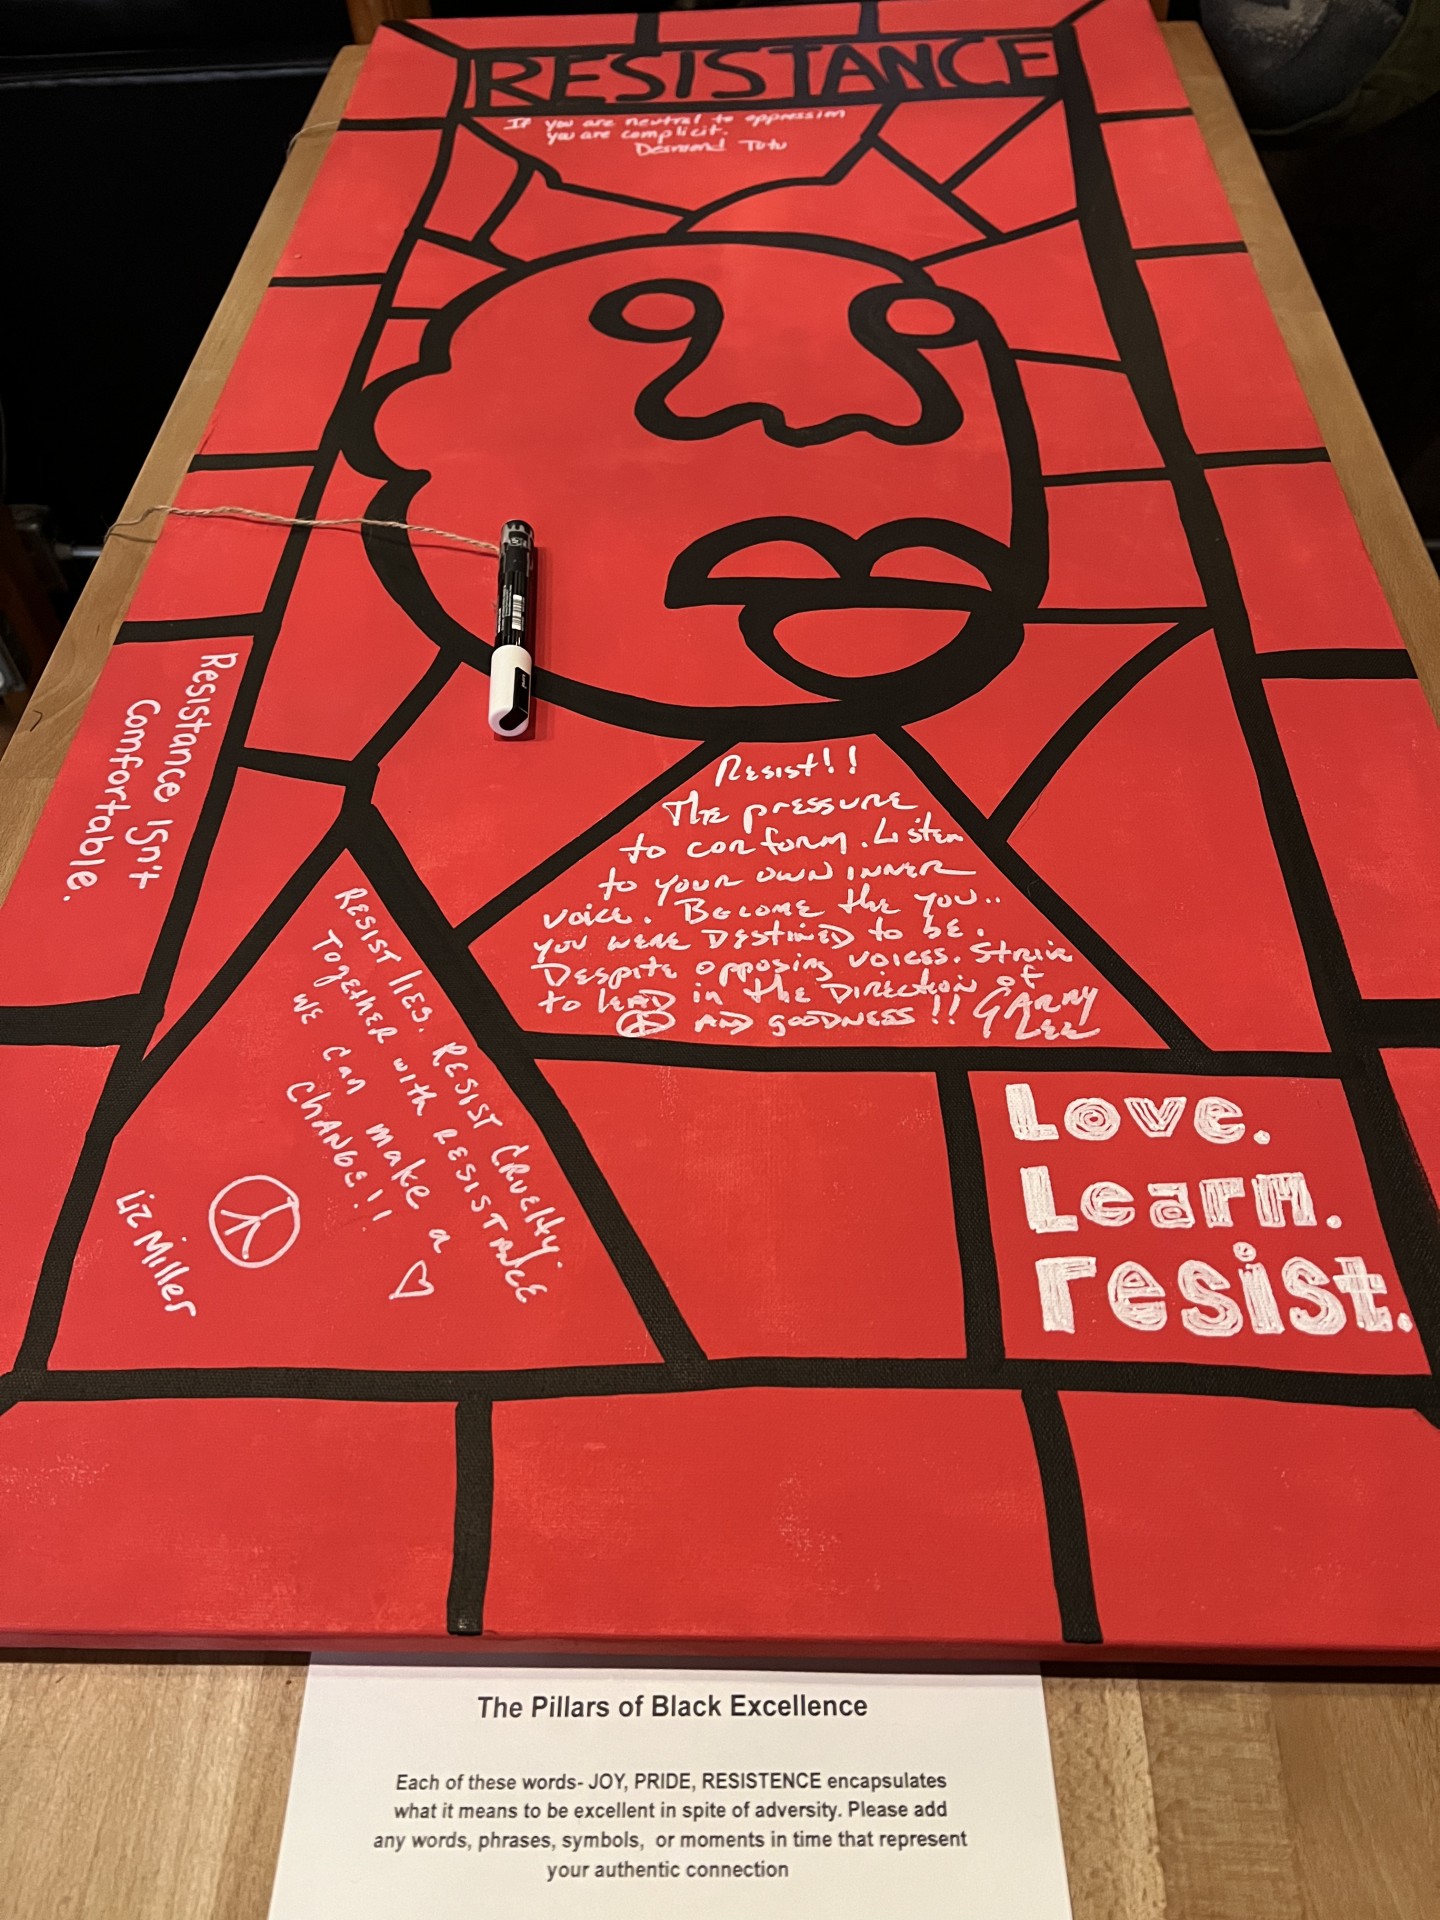 RESISTANCE
If you are neutral to oppression
you are complicit.
Desmond Tutu
Resistance Isn't
Comfortable.
Resist!!
The pressure
to conform. Listen
to your own inner
voice. Become the you..
you were destined to be.
Despite opposing voices. Strive
to lead in the direction of
and goodness!! Garry
Lee
Resist lies. Resist cruelty.
Together with resistance
we can make a
change!!
Liz Miller
Love.
Learn.
resist.
The Pillars of Black Excellence
Each of these words- JOY, PRIDE, RESISTENCE encapsulates
what it means to be excellent in spite of adversity. Please add
any words, phrases, symbols, or moments in time that represent
your authentic connection